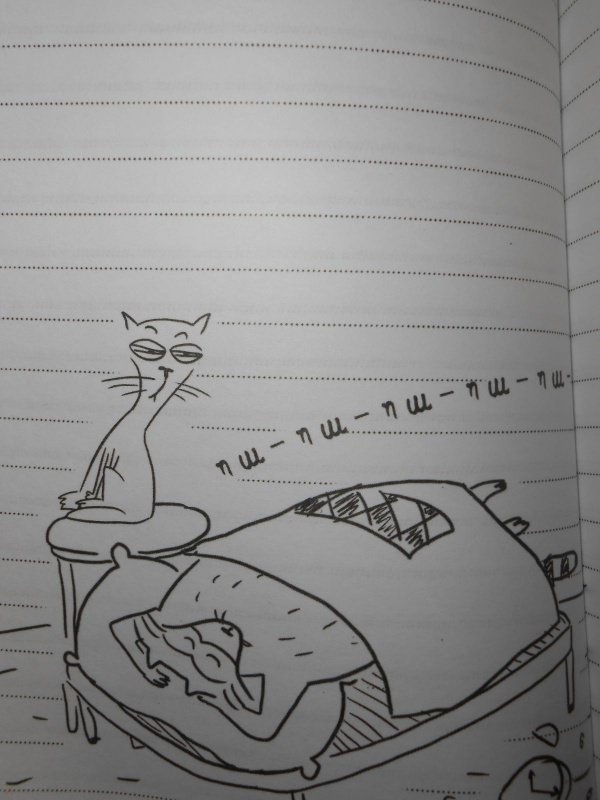 пш - пш - пш - пш - пш -